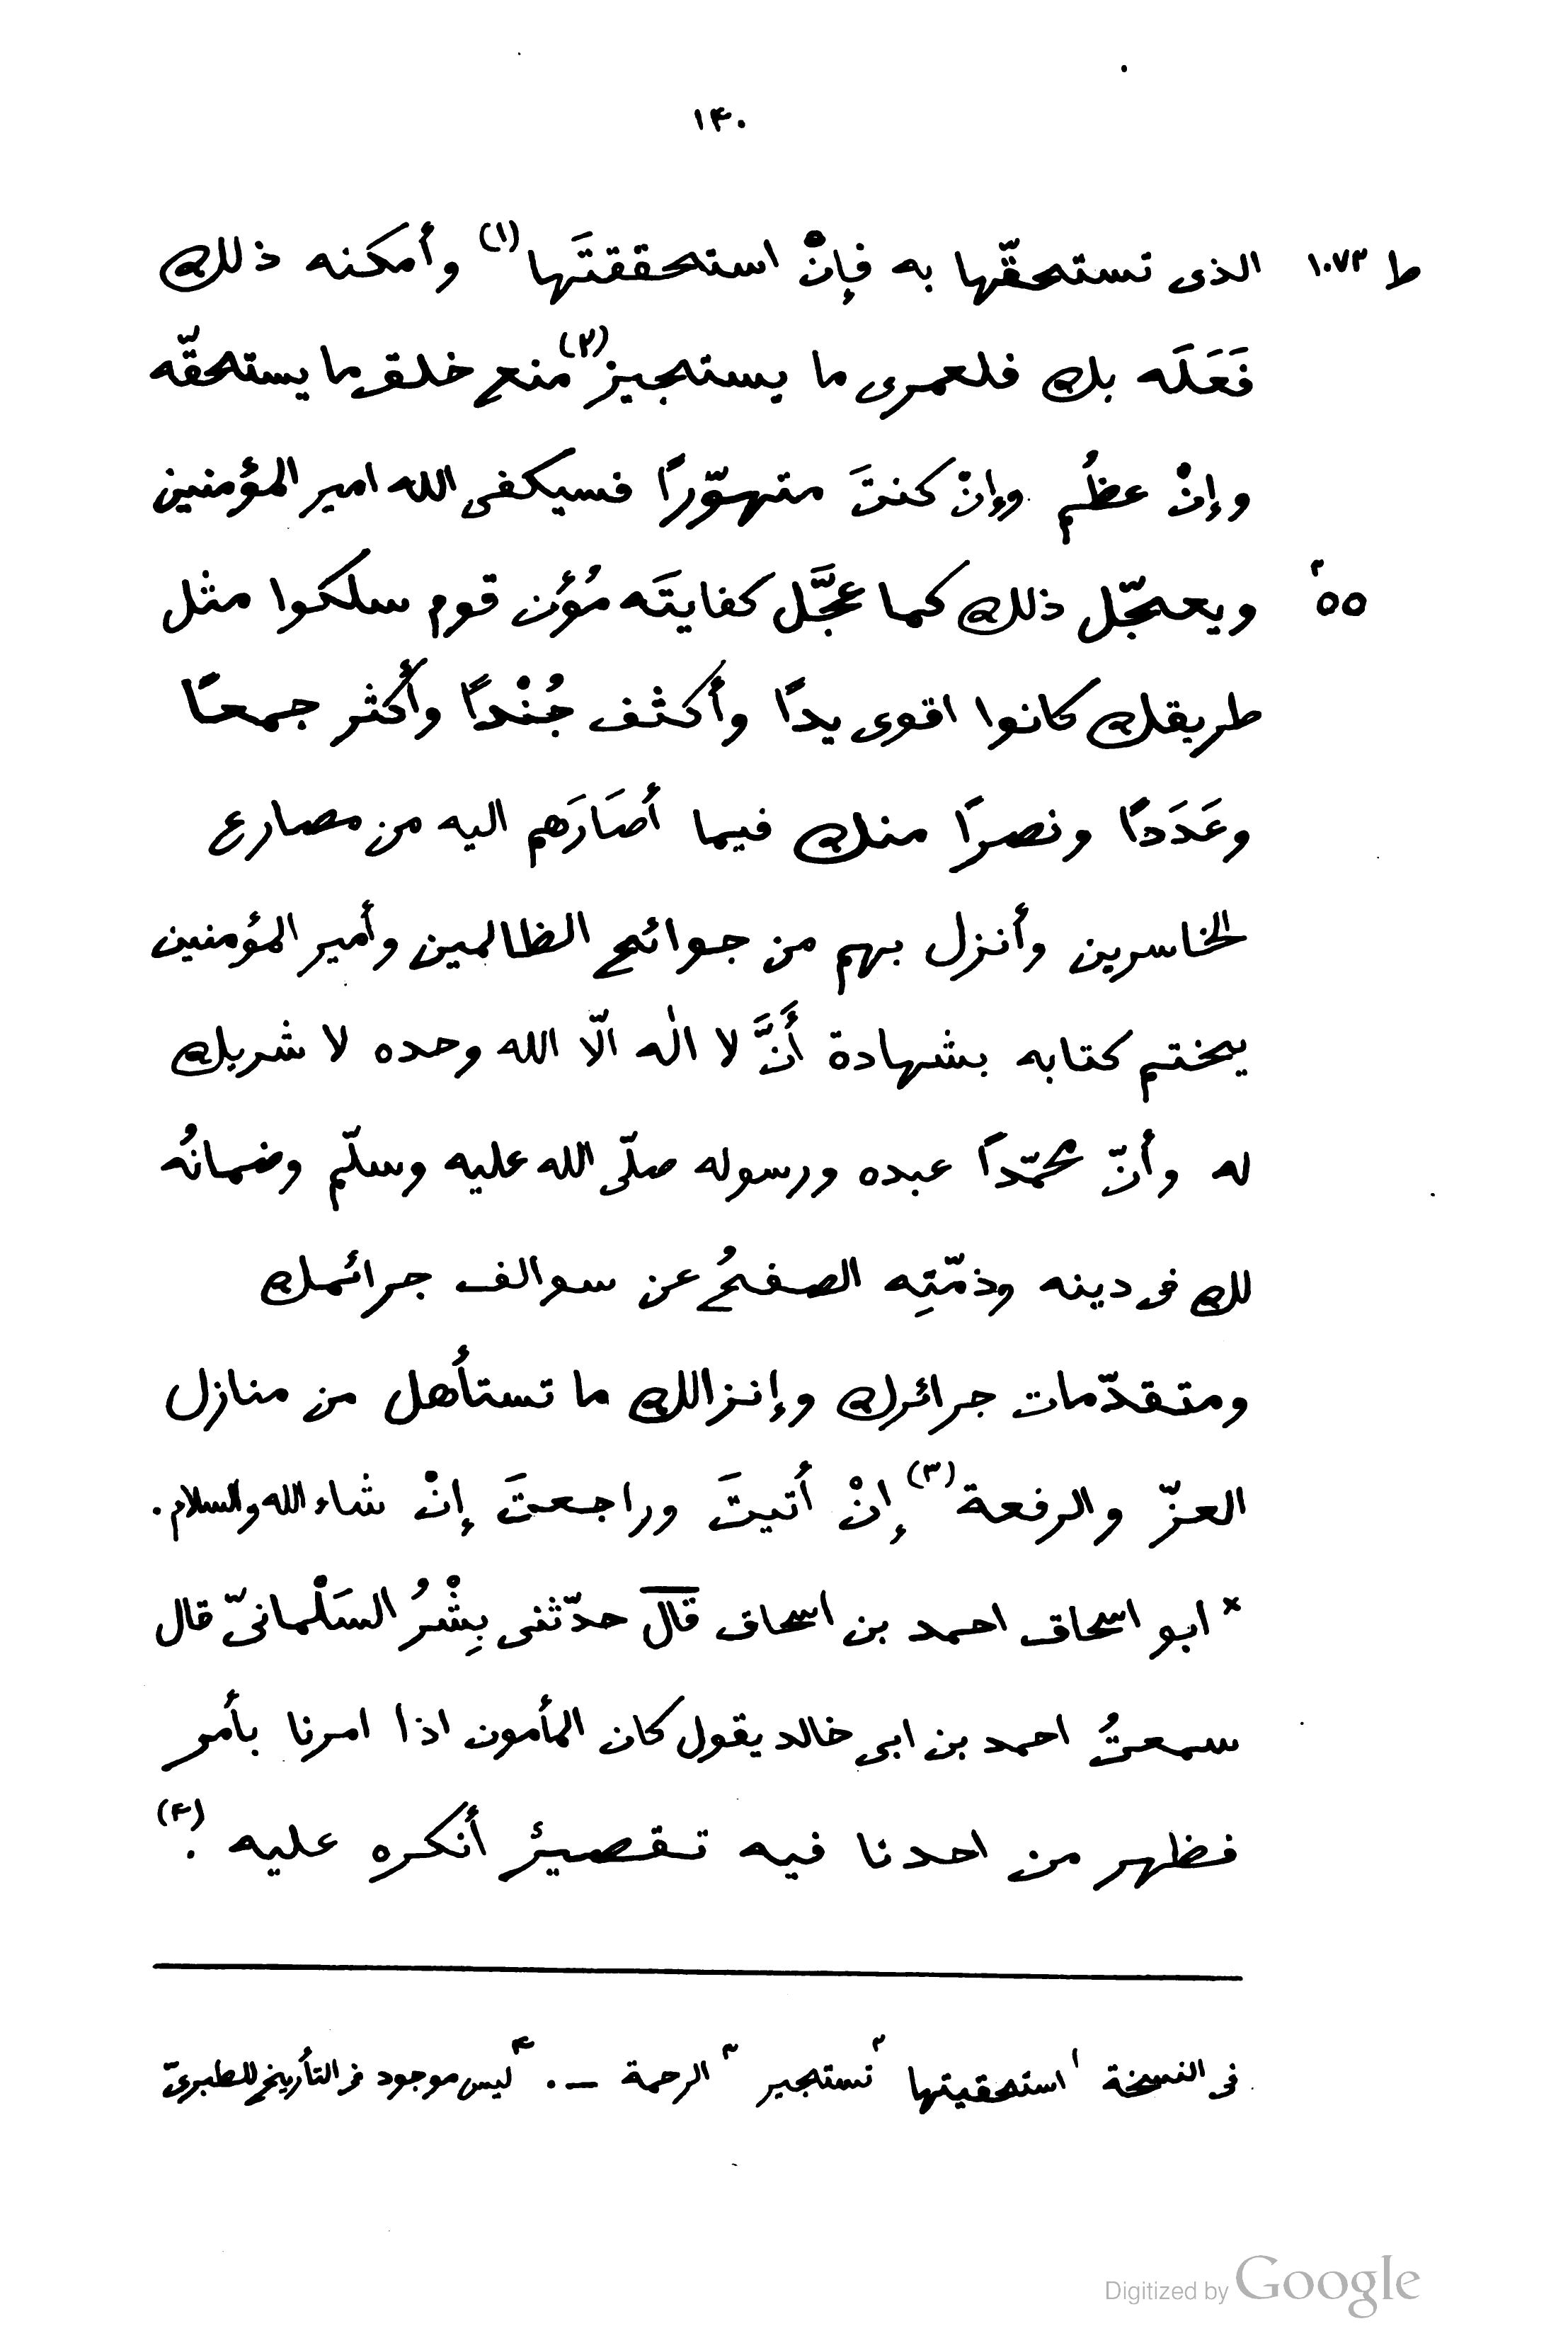 ١٤٠
ط ١٠٧٣ الذى تستحقّها به فإنْ استحققتَها (١) وأمكنه ذلك
فَعَلَه بك فلعمرى ما يستجيز (٢) منع خلق ما يستحقّه
وإنْ عظُم وإنْ كنتَ متهوّرًا فسيكفى الله امير المؤمنين
٥٥ ويعجّل ذلك كما عجَّل كفايتَه مُؤَن قوم سلكوا مثل
طريقك كانوا اقوى يدًا وأكثف جُنْدًا وأكثر جمعًا
وعَدَدًا ونصرًا منك فيما أصَارَهم اليه من مصارع
الخاسرين وأنزل بهم من جوائح الظالمين وأمير المؤمنين
يختم كتابه بشهادة أَنَّ لا اله الّا الله وحده لا شريك
له وأنّ محمّدًا عبده ورسوله صلّى الله عليه وسلّم وضمانُه
لك فى دينه وذمّتِه الصفحُ عن سوالف جرائمك
ومتقدّمات جرائرك وإنزالك ما تستأهل من منازل
العزّ والرفعة (٣) إنْ أتيتَ وراجعتَ إنْ شاء الله والسلام.
× ابو اسحاق احمد بن اسحاق قال حدّثنى بِشْرُ السَلْمانىّ قال
سمعتُ احمد بن ابى خالد يقول كان المأمون اذا امرنا بأمر
فظهر من احدنا فيه تقصيرٌ أنكره عليه. (٤)
فى النسخة ١ استحقيتها ٢ تستجير ٣ الرحمة —. ٤ ليس موجود فى التأريخ للطبرىّ
Digitized by Google